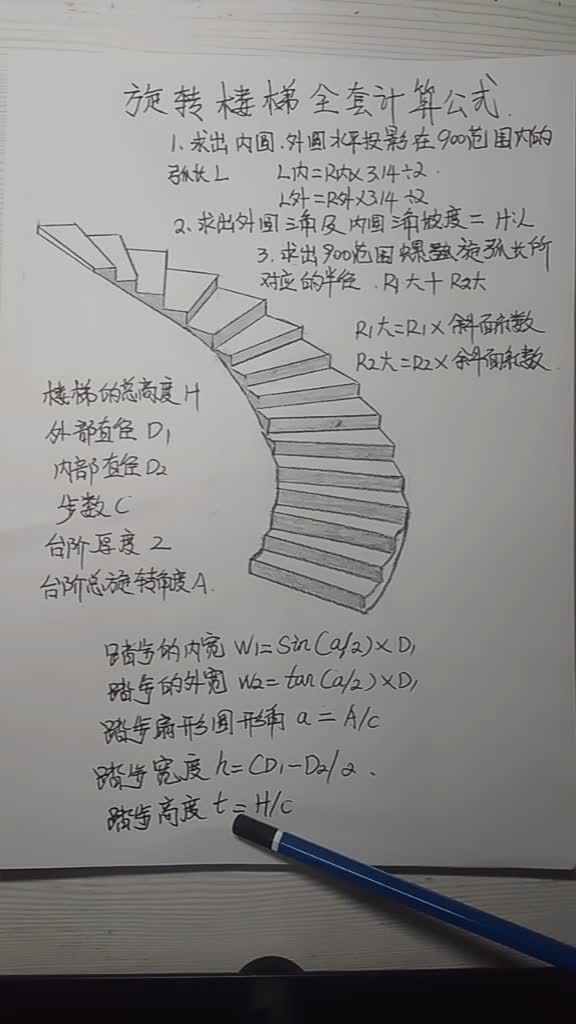 旋转楼梯全套计算公式.
1、求出内圆.外圆水平投影在90º范围内的
弧长L L内=R内×3.14÷2.
L外=R外×3.14÷2
2、求出外圆三角及内圆三角坡度=H:L
3.求出90º范围螺旋弧长所
对应的半径.R1大+R2大
R1大=R1×斜面系数
R2大=R2×斜面系数
楼梯的总高度H
外部直径D1
内部直径D2
步数C
台阶厚度Z
台阶总旋转角度A.
踏步的内宽W1=Sin(a/2)×D1
踏步的外宽W2=tan(a/2)×D1
踏步扇形圆形角a=A/c
踏步宽度h=(D1-D2/2.
踏步高度t=H/c